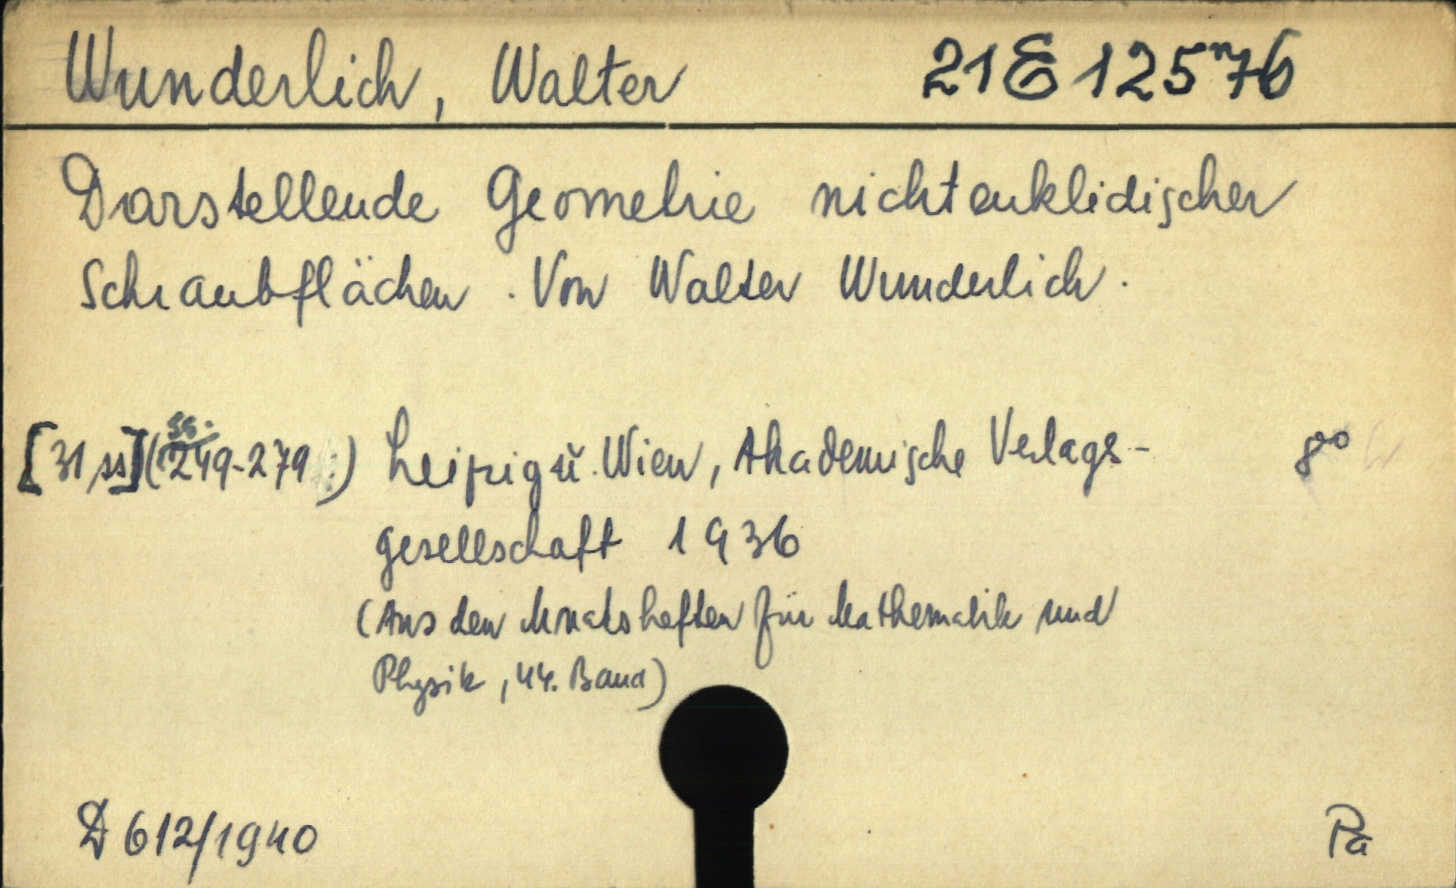 Wunderlich, Walter 21 E 12576
Darstellende Geometrie nichteuklidischer
Schraubflächen. Von Walter Wunderlich.
[31 ss] (ss. 249-279) Leipzig u. Wien, Akademische Verlags- 8°
gesellschaft 1936
(Aus den Monatsheften für Mathematik und
Physik, 44. Band)
D 612/1940 Pa